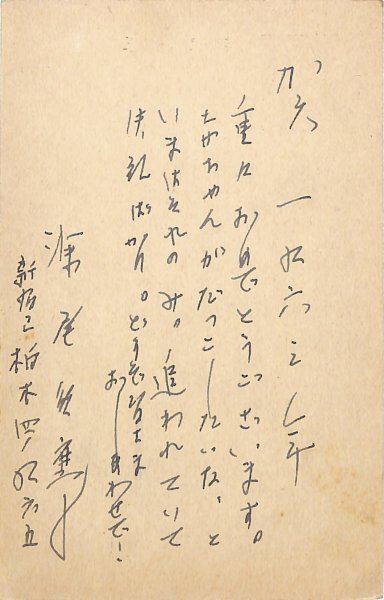 賀 一九六三年
重々おめでとうございます。
たかちゃんがだっこしたいな、と
いまはそれのみ。追われていて
失礼ばかり。どうぞ皆さま
おしあわせで！
深尾須磨子
新宿区柏木四ノ九六五